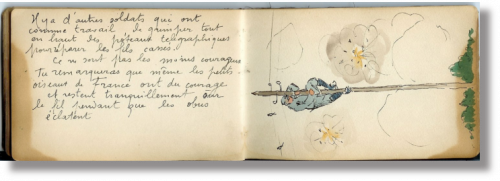 Il y a d'autres soldats qui ont
comme travail, de grimper tout
en haut des poteaux télégraphiques
pour réparer les fils cassés.
Ce ne sont pas les moins courageux
Tu remarqueras que même les petits
oiseaux de France ont du courage
et restent tranquillement sur
le fil pendant que les obus
éclatent